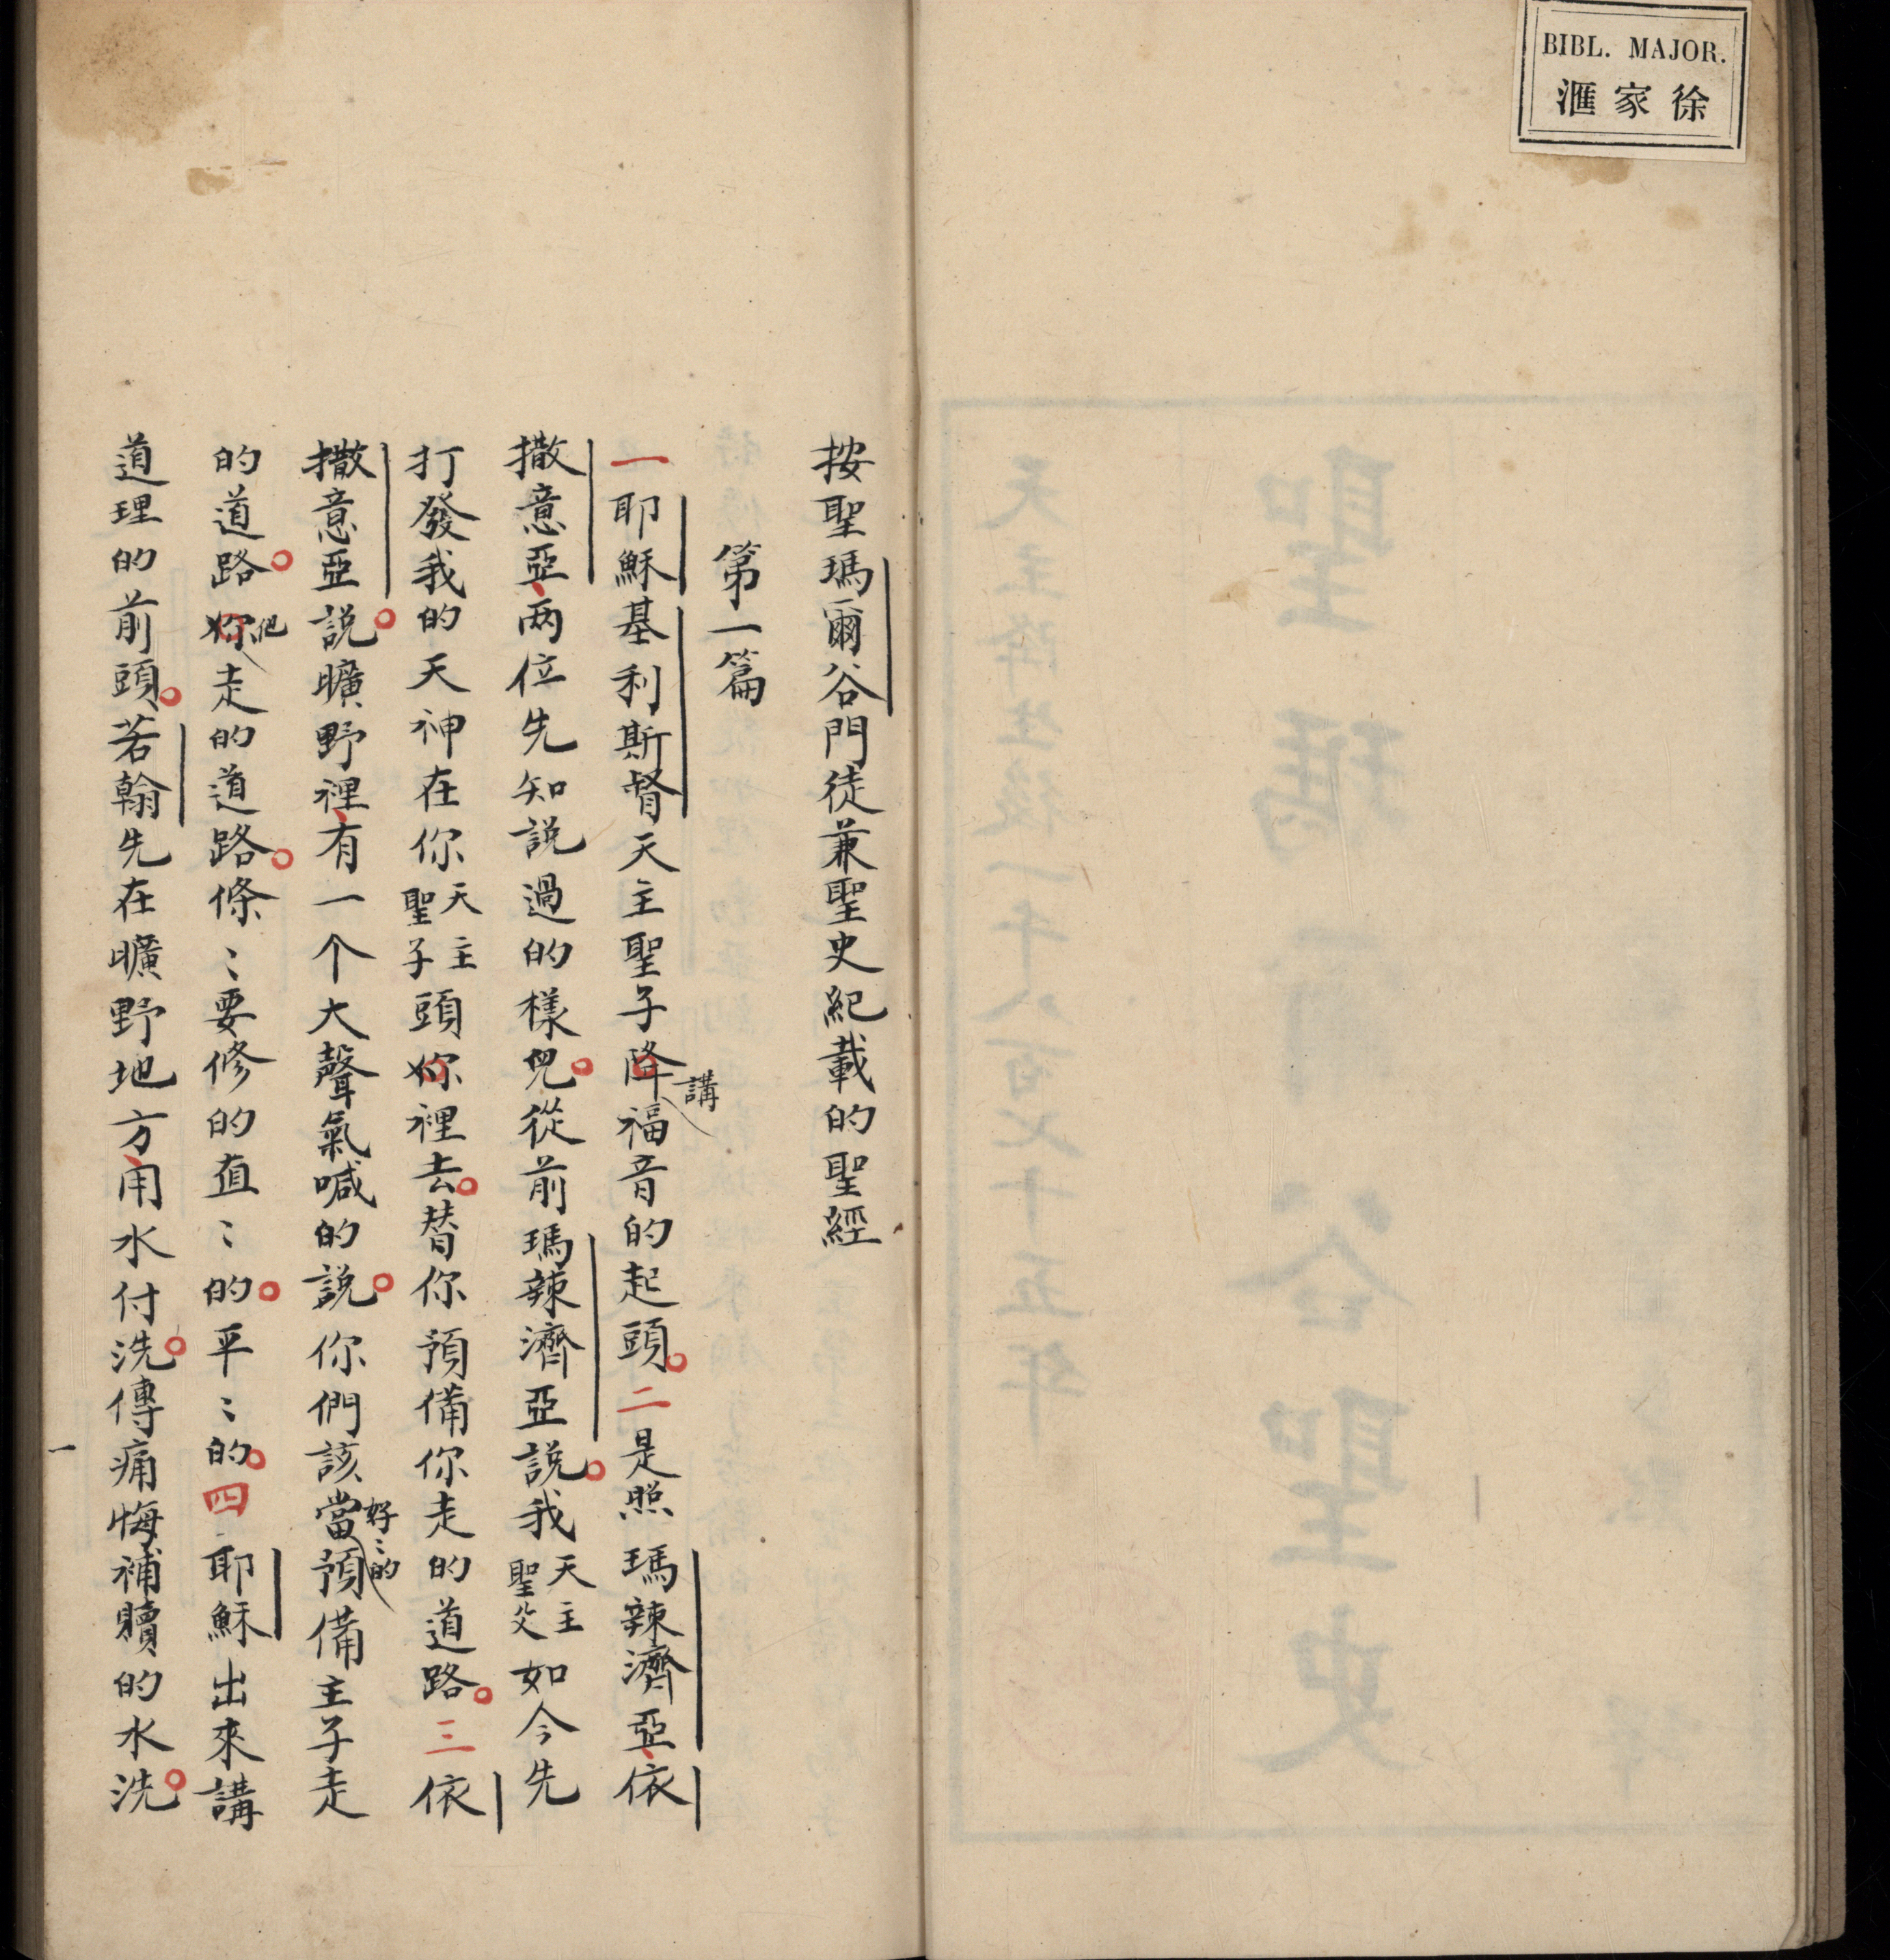 BIBL. MAJOR.
徐家滙
聖瑪爾谷聖史
天主降生後一千八百七十五年
按聖瑪爾谷門徒兼聖史紀載的聖經
第一篇
一耶穌基利斯督天主聖子降講福音的起頭。二是照瑪辣濟亞、依
撒意亞、两位先知說過的樣兒。從前瑪辣濟亞說。我天主聖父如今先
打發我的天神在你天主聖子頭妳裡去。替你預備你走的道路。三依
撒意亞說。曠野裡、有一个大聲氣喊的說。你們該當好〻的預備主子走
的道路。妳他走的道路。條〻要修的直〻的。平〻的。四耶穌出來講
道理的前頭。若翰先在曠野地方、用水付洗。傳痛悔補贖的水洗。
一